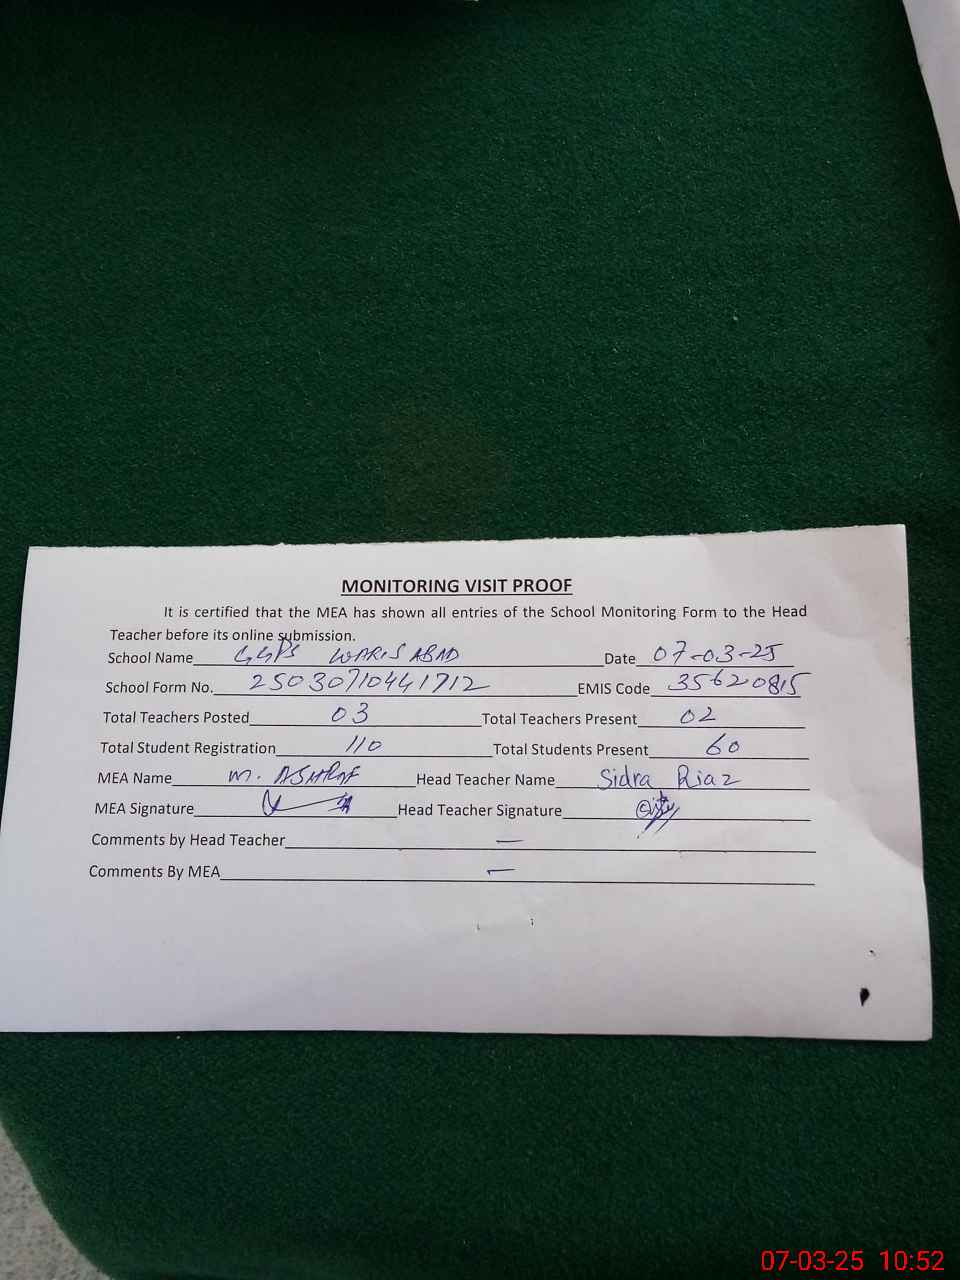 MONITORING VISIT PROOF
It is certified that the MEA has shown all entries of the School Monitoring Form to the Head
Teacher before its online submission.
School Name GGPS WARIS ABAD Date 07-03-25
School Form No. 25030710441712 EMIS Code 35620815
Total Teachers Posted 03 Total Teachers Present 02
Total Student Registration 110 Total Students Present 60
MEA Name M. ASHRAF Head Teacher Name Sidra Riaz
MEA Signature Head Teacher Signature
Comments by Head Teacher —
Comments By MEA —
07-03-25 10:52